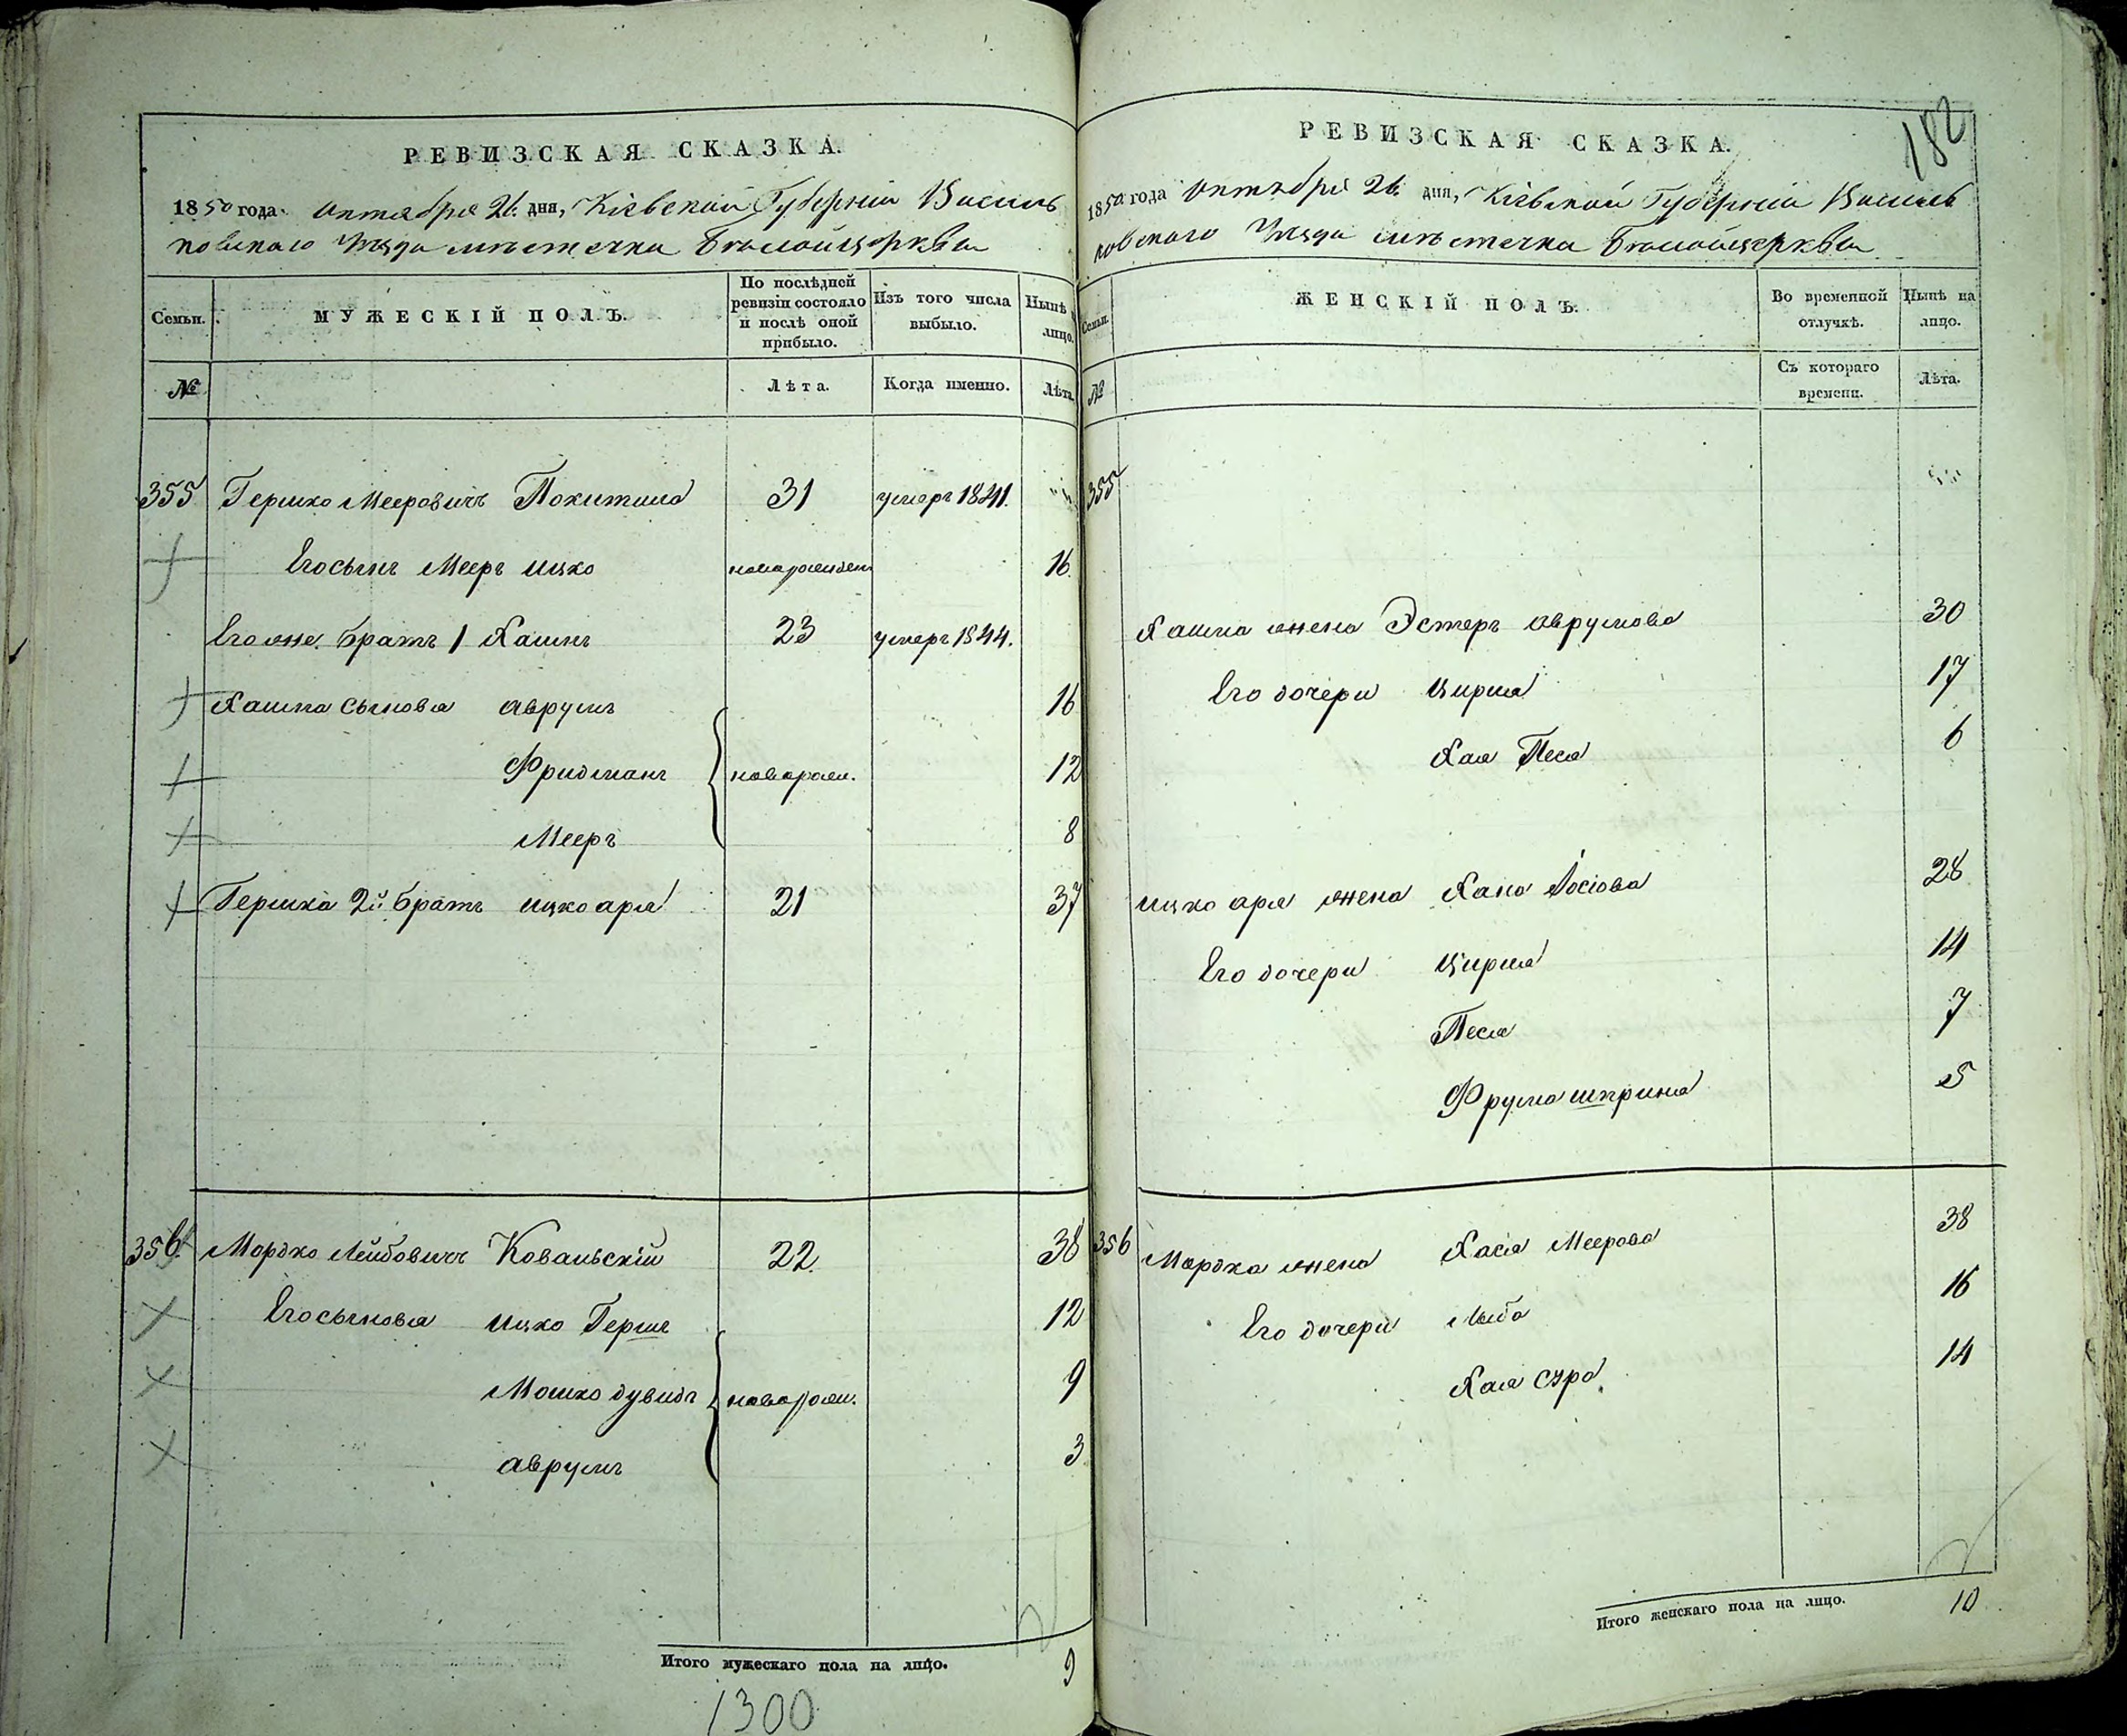 РЕВИЗСКАЯ СКАЗКА.
1850 года Октября 26 дня, Кіевской Губерніи Василь
ковскаго Уезда местечка Белойцеркви
Семьи. МУЖЕСКІЙ ПОЛЪ. По послѣдней ревизіи состояло и послѣ оной прибыло. Изъ того числа выбыло. Нынѣ на лицо.
№ Лѣта. Когда именно. Лѣта.
355 Гершко Мееровичъ Похитило 31 умеръ 1841.
Его сынъ Мееръ Ицко новорожден 16.
Его же. братъ 1 Хаимъ 23 умеръ 1844.
Хаима сыновья Аврумъ 16
Фридманъ новорож. 12
Мееръ 8
Гершка 2й братъ Ицко Аря 21 37
356. Мордко Лейбовичъ Ковальскій 22. 38
Его сыновья Ицко Гершъ 12
Мошко Дувидъ новорож. 9
Аврумъ 3
Итого мужескаго пола на лицо. 9
1300
182
РЕВИЗСКАЯ СКАЗКА.
1850 года Октября 26. дня, Кіевской Губерніи Василь
ковскаго Уезда местечка Белойцеркви
Семьи. ЖЕНСКІЙ ПОЛЪ. Во временной отлучкѣ. Нынѣ на лицо.
№ Съ котораго времени. Лѣта.
355
Хаима жена Эстеръ Аврумова 30
Его дочери Цирля 17
Хая Песя 6
Ицко Аря жена Хана Іосіова 28
Его дочери Цирля 14
Песя 7
Фрума Шприна 5
356 Мордка жена Хася Меерова 38
Его дочери 16
Хая Сура 14
Итого женскаго пола на лицо. 10